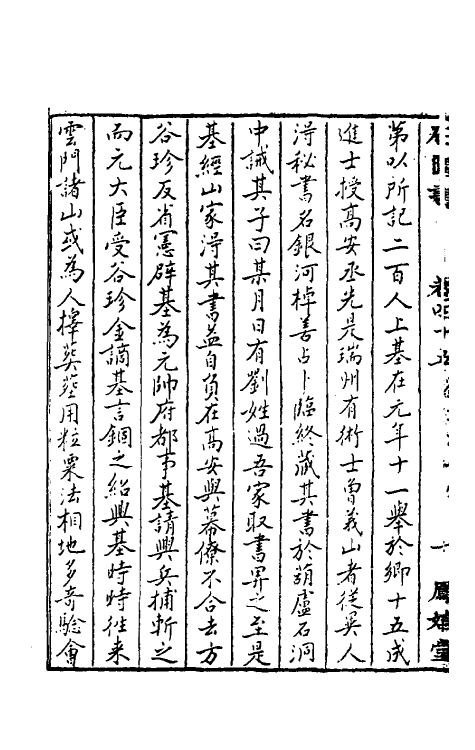 第以所記二百人上基在元年十一舉於鄉十五成
進士授高安丞先是瑞州有術士曾義山者從異人
淂秘書名銀河棹善占卜臨終藏其書於葫盧石洞
中誡其子曰某月日有劉姓過吾家取書畀之至是
基經山家淂其書益自負在高安與幕僚不合去方
谷珍反省憲辟基為元帥府都事基請興兵捕斬之
而元大臣受谷珍金謫基言錮之紹興基時時徃来
雲門諸山或為人擇葬塟用粒粟法相地多奇驗會